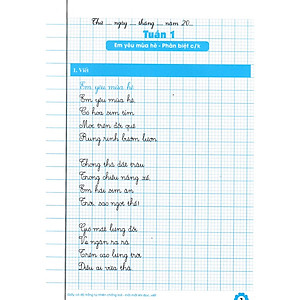 Thứ ... ngày ... tháng ... năm 20...
Tuần 1
Em yêu mùa hè - Phân biệt c/k
1. Viết
Em yêu mùa hè
Em yêu mùa hè
Có hoa sim tím
Mọc trên đồi quê
Rung rinh bướm lượn
Thong thả dắt trâu
Trong chiều nắng xế
Em hái sim ăn
Trời sao ngọt thế!
Gió mát lưng đồi
Ve ngân ra rả
Trên cao lưng trời
Diều ai vừa thả.